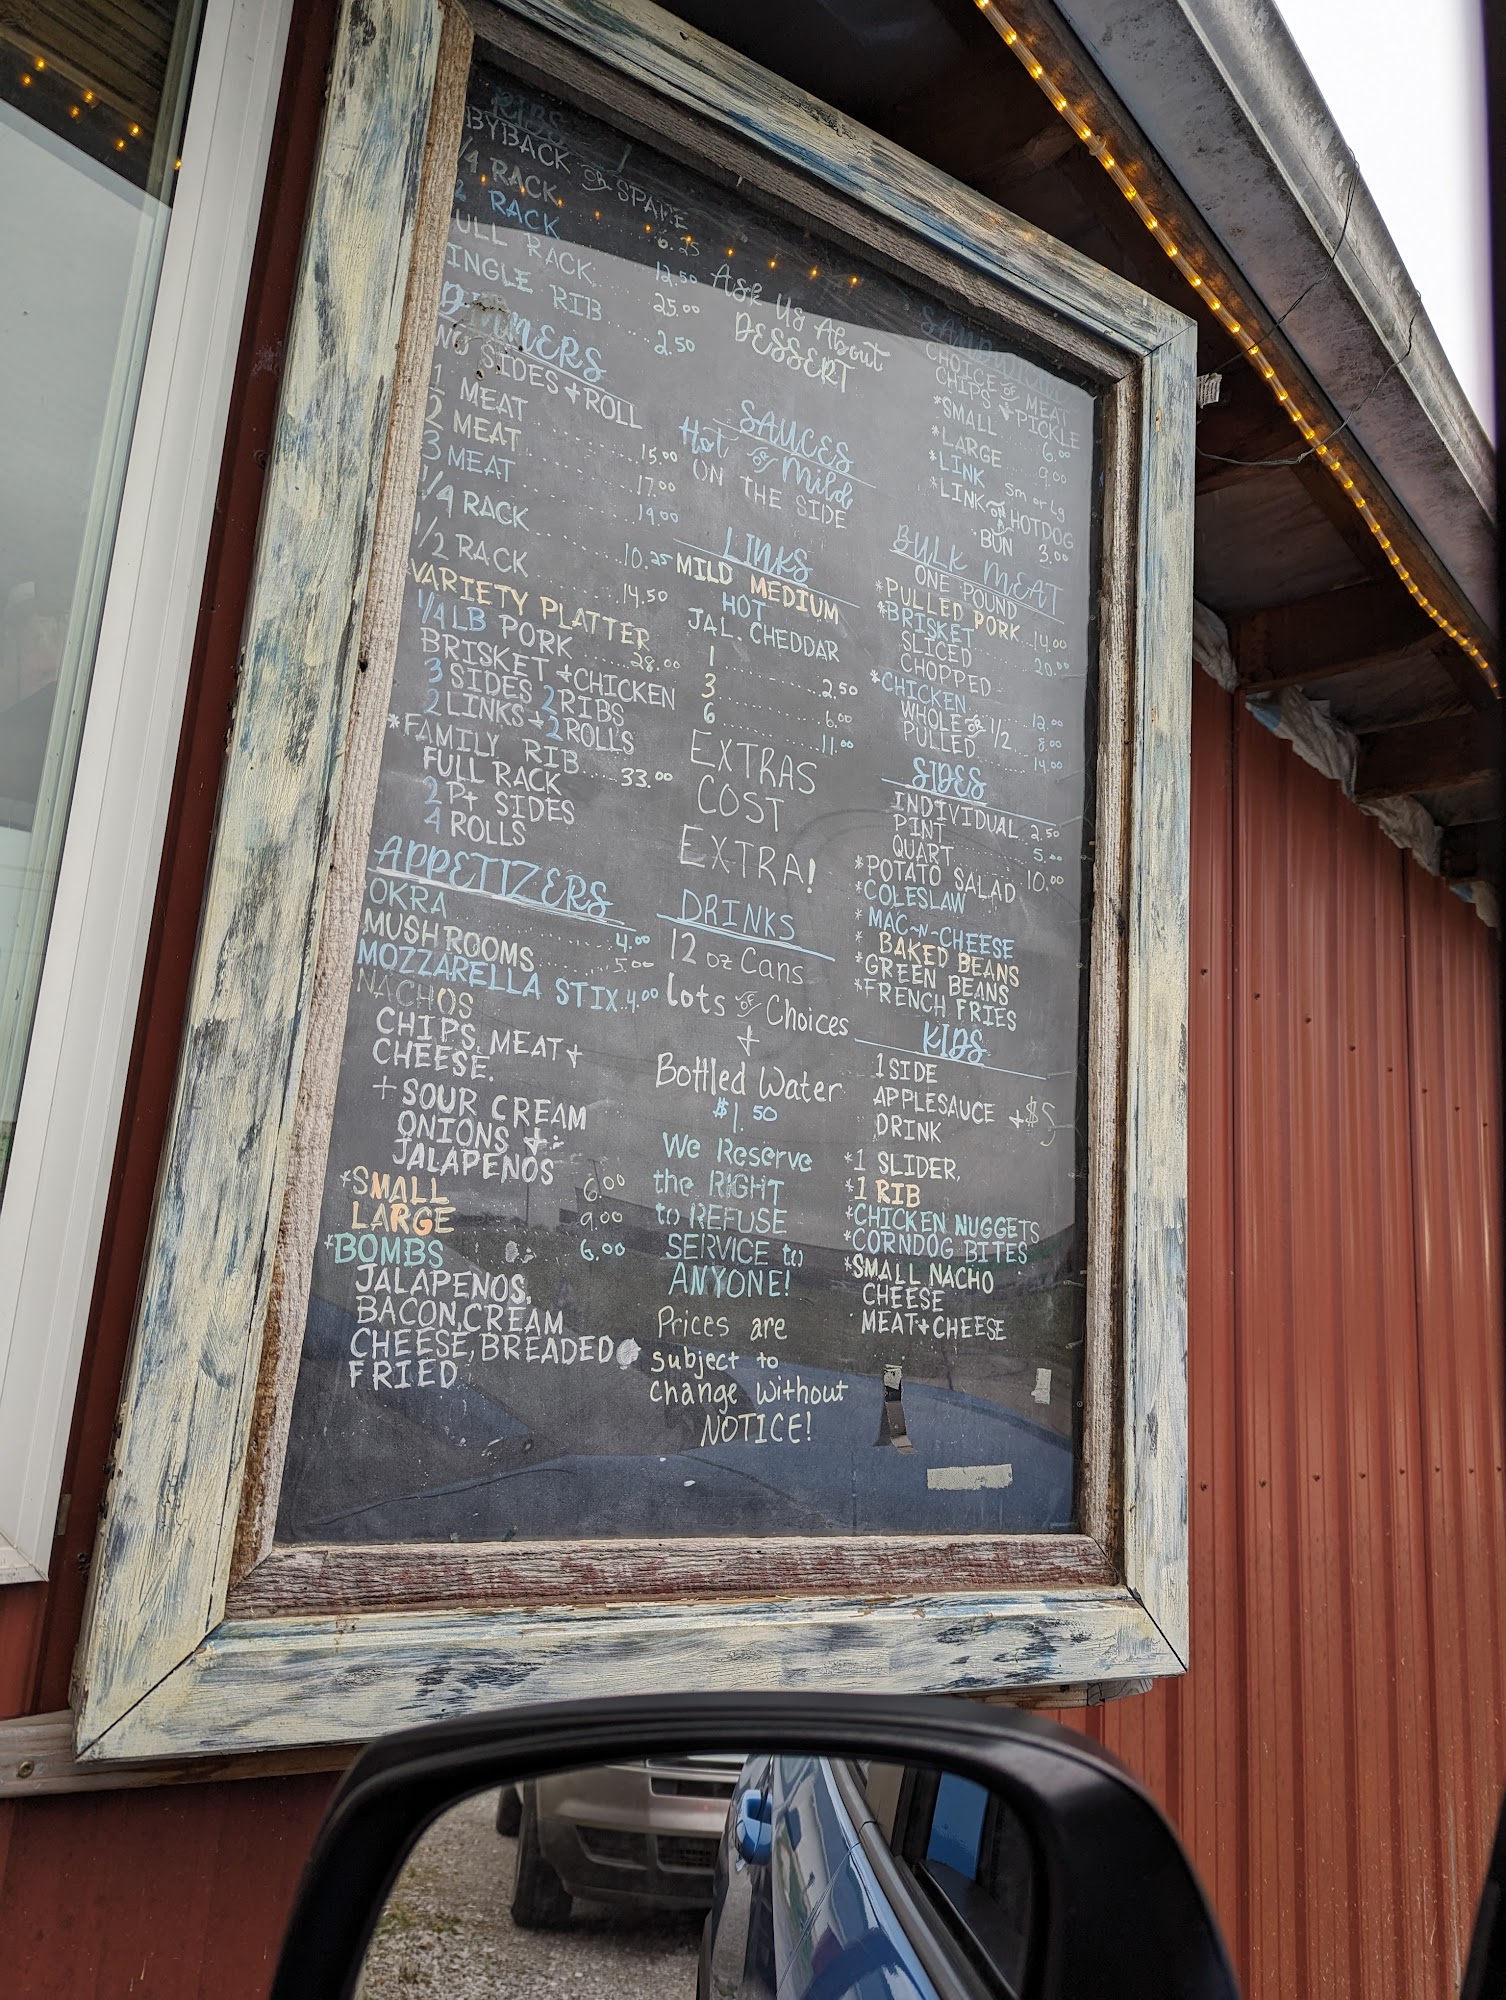 RIBS
BYBACK OR SPARE
/4 RACK 6.25
RACK 12.50
ULL RACK 25.00
INGLE RIB 2.50
DINNERS
WO SIDES + ROLL
1 MEAT 15.00
2 MEAT 17.00
3 MEAT 19.00
1/4 RACK 10.25
1/2 RACK 14.50
VARIETY PLATTER
1/4 LB PORK 28.00
BRISKET + CHICKEN
3 SIDES 2 RIBS
2 LINKS + 2 ROLLS
*FAMILY RIB 33.00
FULL RACK
2 Pt SIDES
4 ROLLS
APPETIZERS
OKRA 4.00
MUSHROOMS 5.00
MOZZARELLA STIX 4.00
NACHOS
CHIPS, MEAT +
CHEESE.
+ SOUR CREAM
ONIONS +
JALAPENOS
*SMALL 6.00
LARGE 9.00
*BOMBS 6.00
JALAPENOS,
BACON, CREAM
CHEESE, BREADED
FRIED
Ask Us About
DESSERT
SAUCES
Hot or Mild
ON THE SIDE
LINKS
MILD MEDIUM
HOT
JAL. CHEDDAR
1 2.50
3 6.00
6 11.00
EXTRAS
COST
EXTRA!
DRINKS
12 oz Cans
Lots OF Choices
+
Bottled Water
$1.50
We Reserve
the RIGHT
to REFUSE
SERVICE to
ANYONE!
Prices are
subject to
change without
NOTICE!
CHOICE OF MEAT
CHIPS + PICKLE
*SMALL 6.00
*LARGE 9.00
*LINK Sm or Lg
*LINK ON A HOTDOG
BUN 3.00
BULK MEAT
ONE POUND
*PULLED PORK 14.00
*BRISKET 20.00
SLICED
CHOPPED
*CHICKEN 12.00
WHOLE OR 1/2 8.00
PULLED 14.00
SIDES
INDIVIDUAL 2.50
PINT 5.00
QUART 10.00
*POTATO SALAD
*COLESLAW
*MAC-N-CHEESE
*BAKED BEANS
*GREEN BEANS
*FRENCH FRIES
KIDS
1 SIDE
APPLESAUCE + $5
DRINK
*1 SLIDER,
*1 RIB
*CHICKEN NUGGETS
*CORNDOG BITES
*SMALL NACHO
CHEESE
MEAT + CHEESE